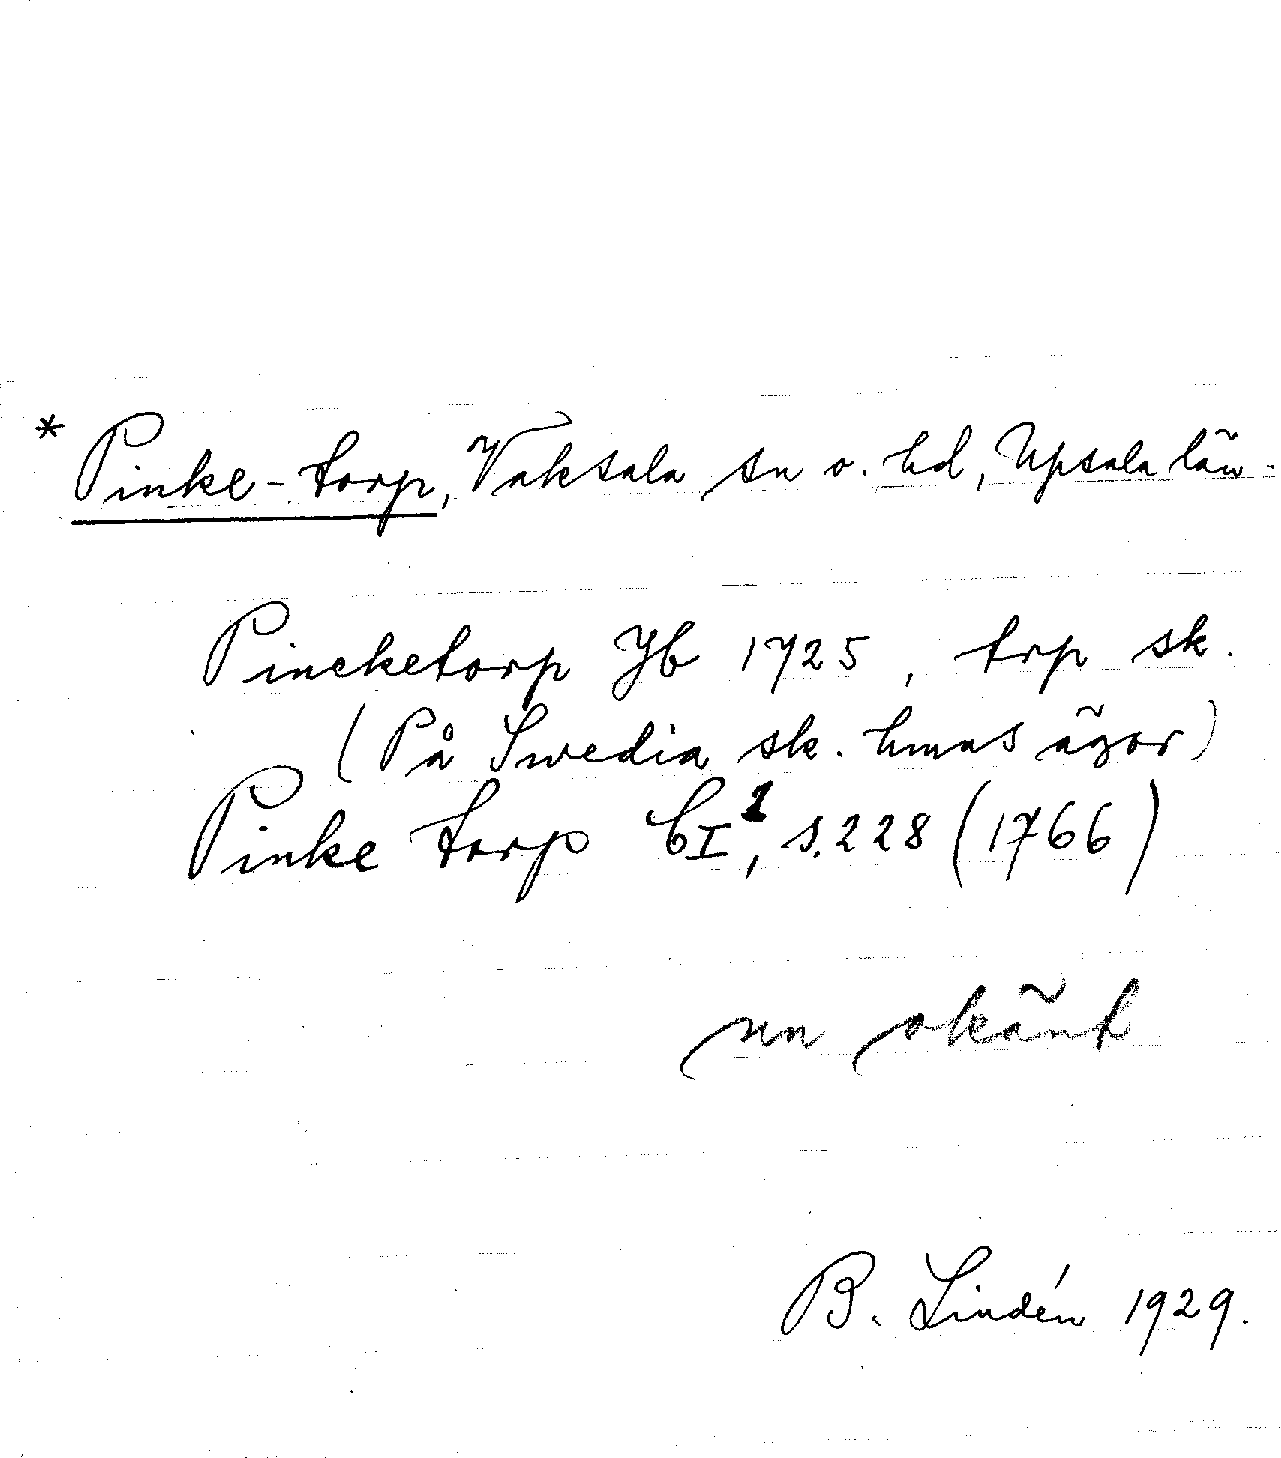 * Pinke-torp, Vaksala sn o. hd, Upsala län.
Pincketorp Jb 1725, trp sk.
(På Swedia sk. hmns ägor)
Pinke torp CI¹, s. 228 (1766)
nn okänt
B. Lindén 1929.